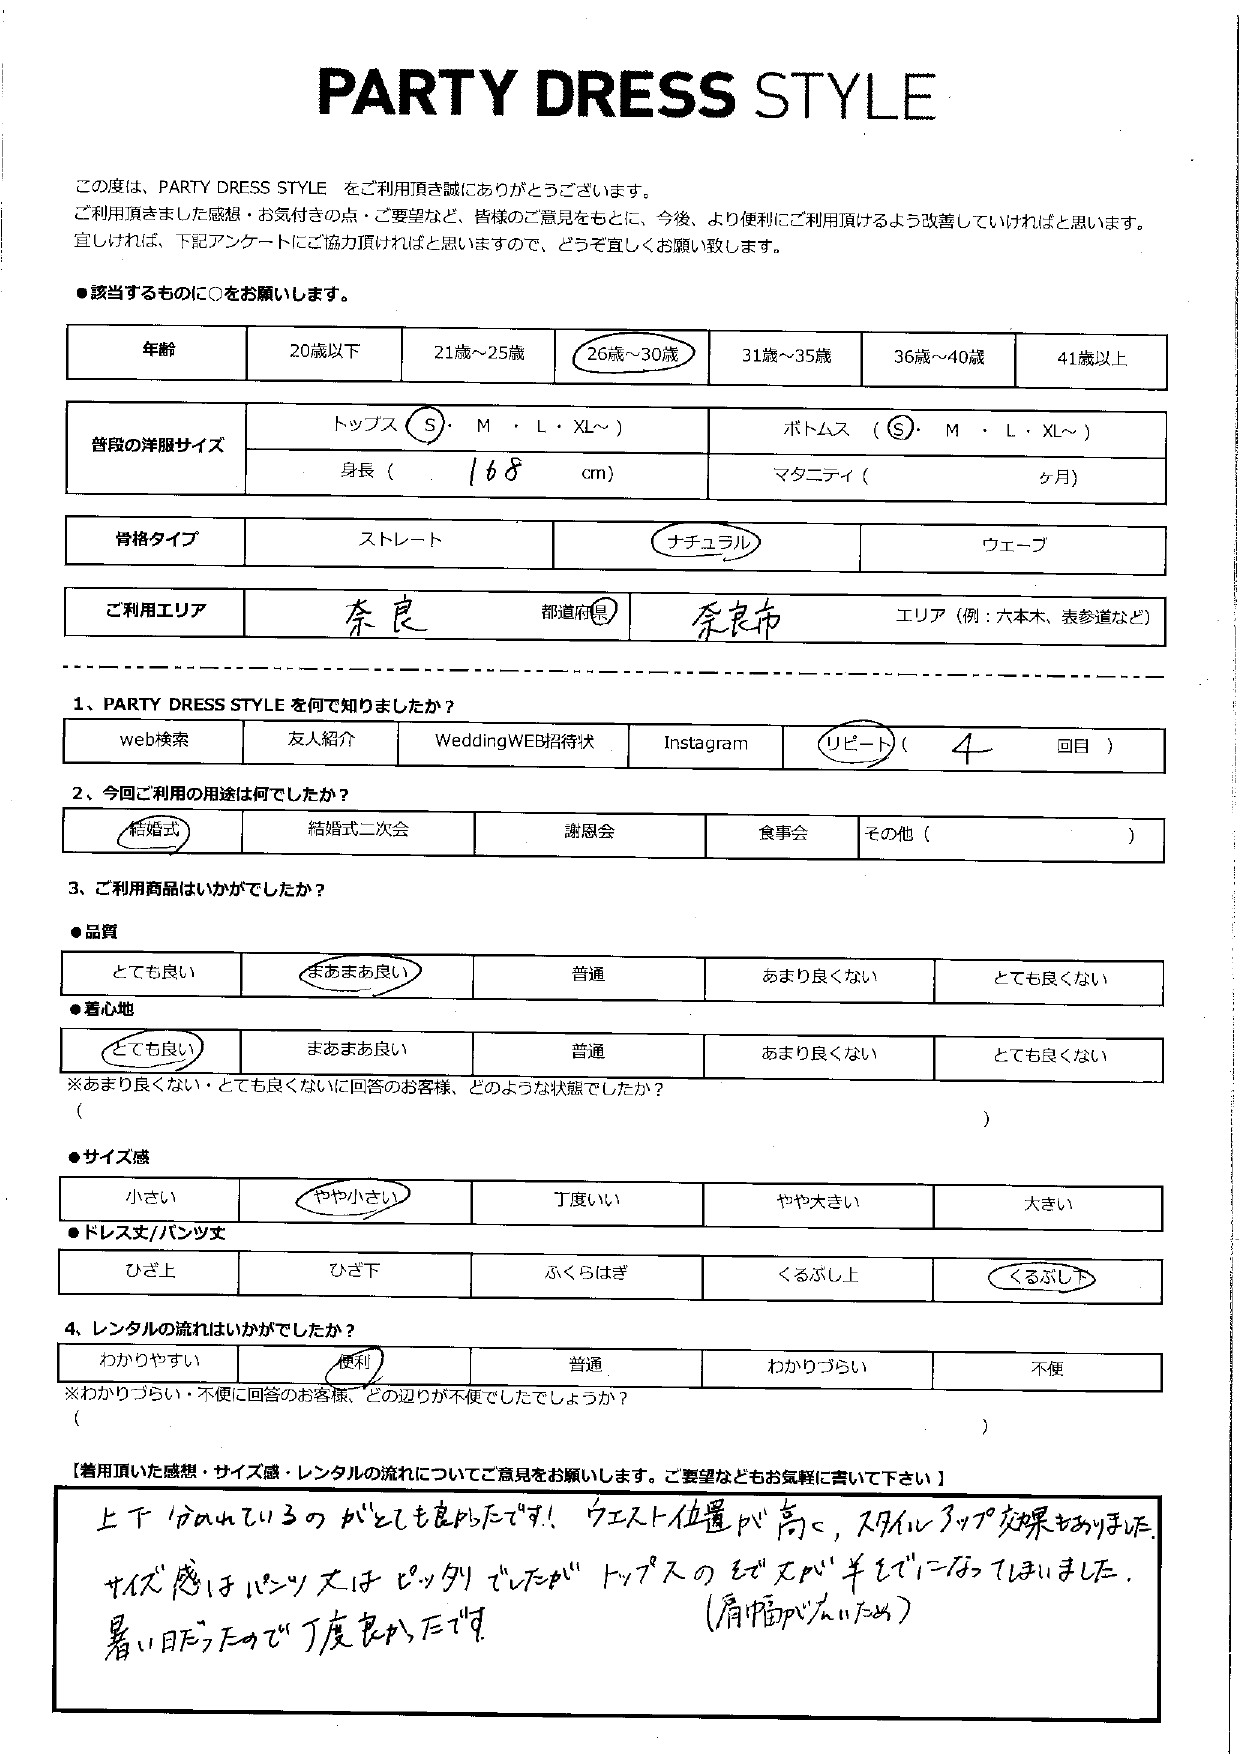 PARTY DRESS STYLE
この度は、PARTY DRESS STYLE をご利用頂き誠にありがとうございます。
ご利用頂きました感想・お気付きの点・ご要望など、皆様のご意見をもとに、今後、より便利にご利用頂けるよう改善していければと思います。
宜しければ、下記アンケートにご協力頂ければと思いますので、どうぞ宜しくお願い致します。
●該当するものに○をお願いします。
年齢 20歳以下 21歳～25歳 26歳～30歳 31歳～35歳 36歳～40歳 41歳以上
普段の洋服サイズ トップス ( S ・ M ・ L ・ XL～ ) ボトムス ( S ・ M ・ L ・ XL～ )
身長 ( 168 cm) マタニティ ( ヶ月)
骨格タイプ ストレート ナチュラル ウェーブ
ご利用エリア 奈良 都道府県 奈良市 エリア（例：六本木、表参道など）
1、PARTY DRESS STYLE を何で知りましたか？
web検索 友人紹介 WeddingWEB招待状 Instagram リピート ( 4 回目 )
2、今回ご利用の用途は何でしたか？
結婚式 結婚式二次会 謝恩会 食事会 その他 ( )
3、ご利用商品はいかがでしたか？
●品質
とても良い まあまあ良い 普通 あまり良くない とても良くない
●着心地
とても良い まあまあ良い 普通 あまり良くない とても良くない
※あまり良くない・とても良くないに回答のお客様、どのような状態でしたか？
( )
●サイズ感
小さい やや小さい 丁度いい やや大きい 大きい
●ドレス丈/パンツ丈
ひざ上 ひざ下 ふくらはぎ くるぶし上 くるぶし下
4、レンタルの流れはいかがでしたか？
わかりやすい 便利 普通 わかりづらい 不便
※わかりづらい・不便に回答のお客様、どの辺りが不便でしたでしょうか？
( )
【着用頂いた感想・サイズ感・レンタルの流れについてご意見をお願いします。ご要望などもお気軽に書いて下さい 】
上下分かれているのがとても良かったです! ウエスト位置が高く, スタイルアップ効果もありました.
サイズ感はパンツ丈はピッタリでしたがトップスのそで丈が半そでになってしまいました.
(肩幅が広いため)
暑い日だったので丁度良かったです